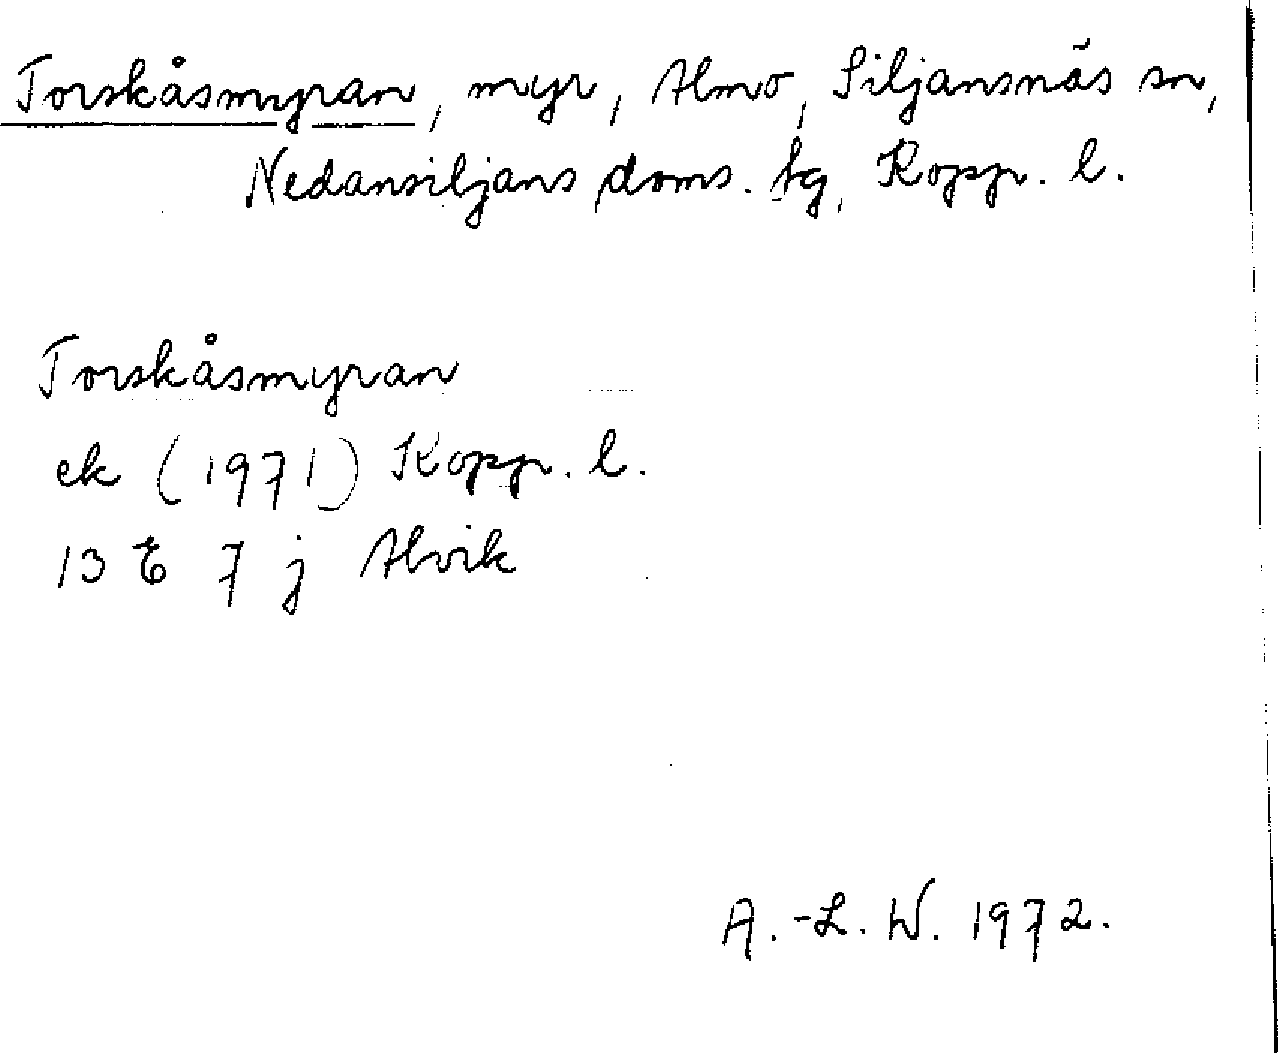 Torskåsmyran, myr, Almo, Siljansnäs sn,
Nedansiljans doms. tg, Kopp. l.
Torskåsmyran
ek (1971) Kopp. l.
13 E 7 j Alvik
A.-L. W. 1972.